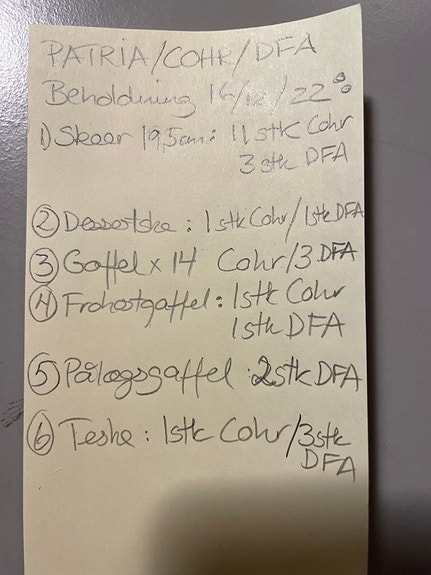 PATRIA/COHR/DFA
Beholdning 16/12/22 :
1) Skeer 19,5cm: 11 stk Cohr
3 stk DFA
2) Dessertske: 1 stk Cohr/1stk DFA
3) Gaffel x 14 Cohr/3 DFA
4) Frokostgaffel: 1stk Cohr
1stk DFA
5) Pålægsgaffel: 2stk DFA
6) Teske: 1stk Cohr/3stk
DFA